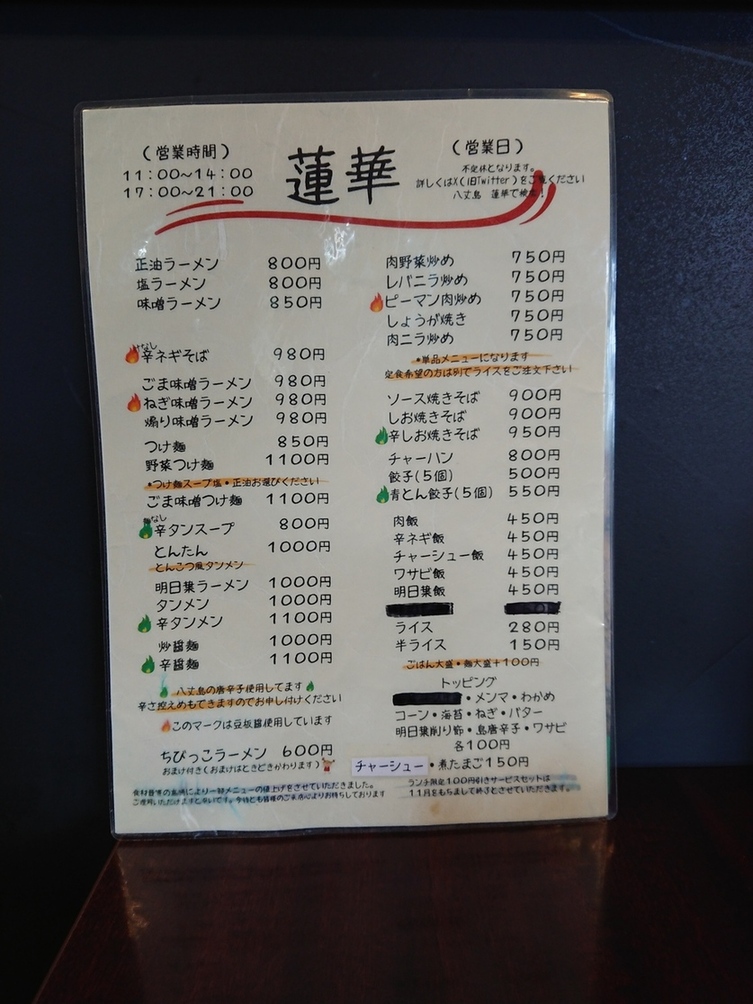 (営業時間)
11:00~14:00
17:00~21:00
蓮華
(営業日)
不定休となります。
詳しくはX(旧Twitter)をご覧ください
八丈島 蓮華で検索!
正油ラーメン 800円
塩ラーメン 800円
味噌ラーメン 850円
汁なし
辛ネギそば 980円
ごま味噌ラーメン 980円
ねぎ味噌ラーメン 980円
煽り味噌ラーメン 980円
つけ麺 850円
野菜つけ麺 1100円
•つけ麺スープ塩・正油お選びください
ごま味噌つけ麺 1100円
麺なし
辛タンスープ 800円
とんたん 1000円
とんこつ風タンメン
明日葉ラーメン 1000円
タンメン 1000円
辛タンメン 1100円
炒醤麺 1000円
辛醤麺 1100円
八丈島の唐辛子使用してます
辛さ控えめもできますのでお申し付けください
このマークは豆板醤使用しています
ちびっこラーメン 600円
おまけ付き(おまけはときどきかわります)
食材昔等の高騰により一部メニューの値上げをさせていただきました。
肉野菜炒め 750円
レバニラ炒め 750円
ピーマン肉炒め 750円
しょうが焼き 750円
肉ニラ炒め 750円
•単品メニューになります
定食希望の方は別でライスをご注文下さい
ソース焼きそば 900円
しお焼きそば 900円
辛しお焼きそば 950円
チャーハン 800円
餃子(5個) 500円
青とん餃子(5個) 550円
肉飯 450円
辛ネギ飯 450円
チャーシュー飯 450円
ワサビ飯 450円
明日葉飯 450円
ライス 280円
半ライス 150円
ごはん大盛・麺大盛+100円
トッピング
・メンマ・わかめ
コーン・海苔・ねぎ・バター
明日葉削り節・島唐辛子・ワサビ
各100円
チャーシュー・煮たまご150円
ランチ限定100円引きサービスセットは
11月をもちまして終了とさせていただきます。